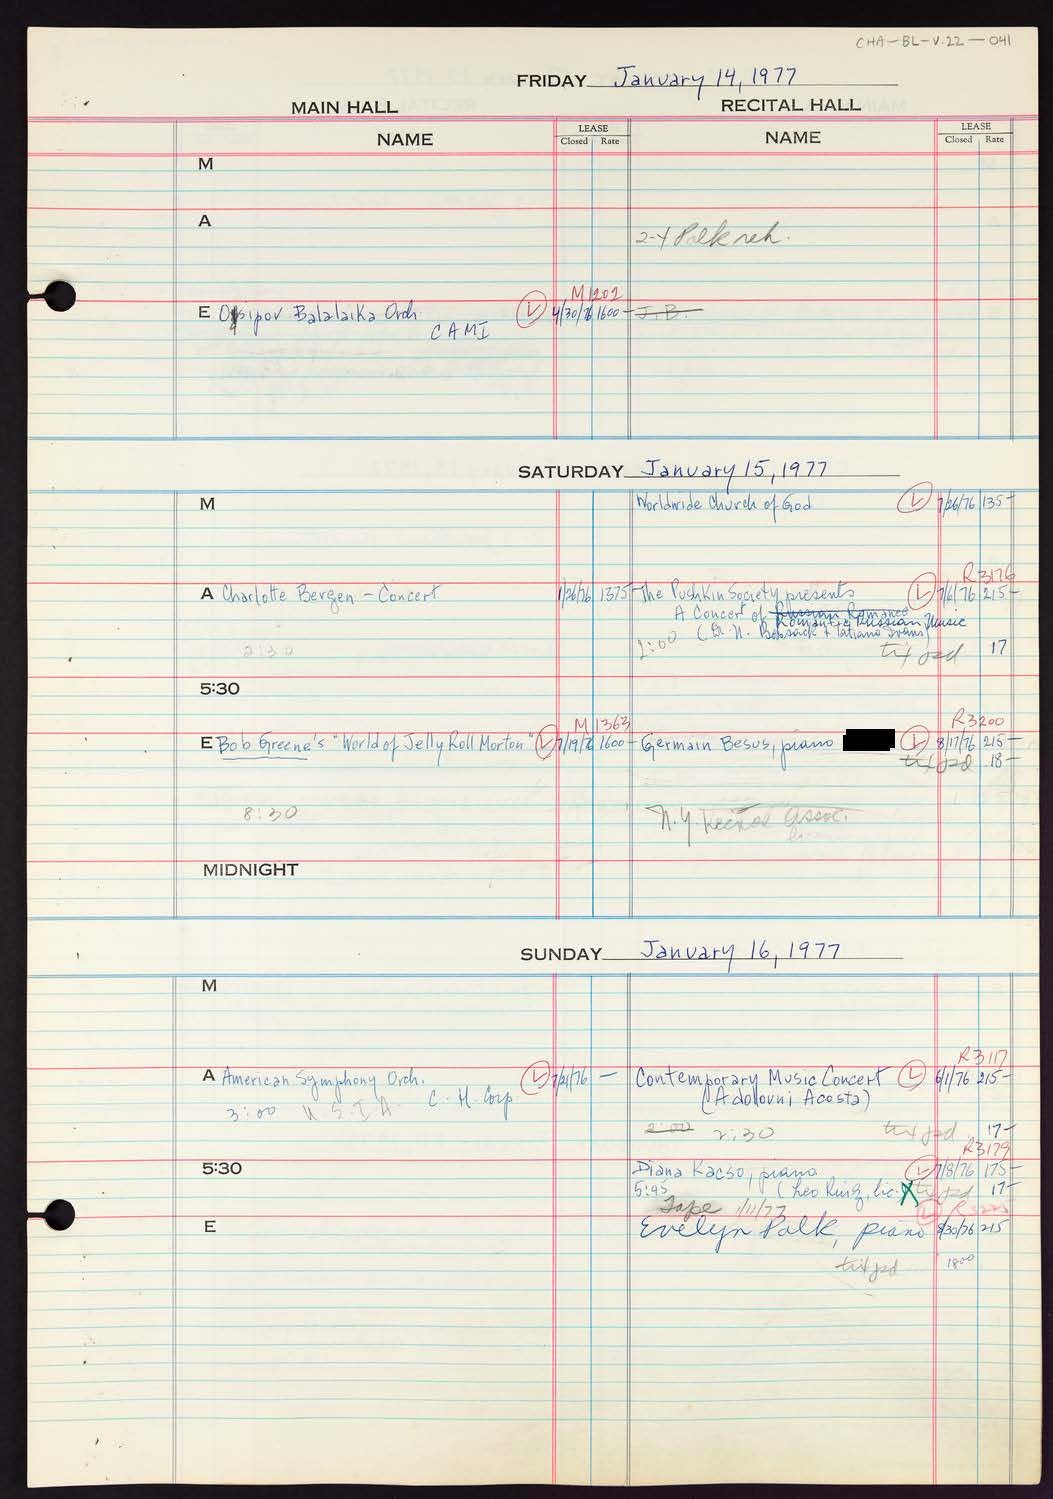 CHA-BL-V.22-041
FRIDAY January 14, 1977
MAIN HALL RECITAL HALL
NAME LEASE Closed Rate NAME LEASE Closed Rate
M
A
2-4 Polk reh.
M1202
E Osipov Balalaika Orch. L 4/30/76 1600- J.B.
CAMI
SATURDAY January 15, 1977
M Worldwide Church of God L 7/26/76 135-
R3176
A Charlotte Bergen - Concert 1/26/76 1375- The Pushkin Society presents L 7/6/76 215-
A Concert of Russian Romance
Romantic Russian Music
2:30 2:00 (Dr. N. & Tatiana
txt pd 17
5:30
M1363 R3200
E Bob Greene's "World of Jelly Roll Morton" L 7/19/76 1600- Germain Besus, piano L 8/17/76 215-
txt pd 18-
8:30 N.Y. Assoc.
MIDNIGHT
SUNDAY January 16, 1977
M
R3117
A American Symphony Orch. L 7/21/76 - Contemporary Music Concert L 6/1/76 215-
3:00 U.S.I.A. C.H. Corp (Adolovni Acosta)
2:00 2:30 txt pd 17-
R3179
5:30 Diana Kacso, piano L 7/8/76 175-
5:45 (Leo Ruiz, lic. X txt pd 17-
Tape 1/11/77 L
E Evelyn Polk, piano 8/30/76 215
txt pd 1800